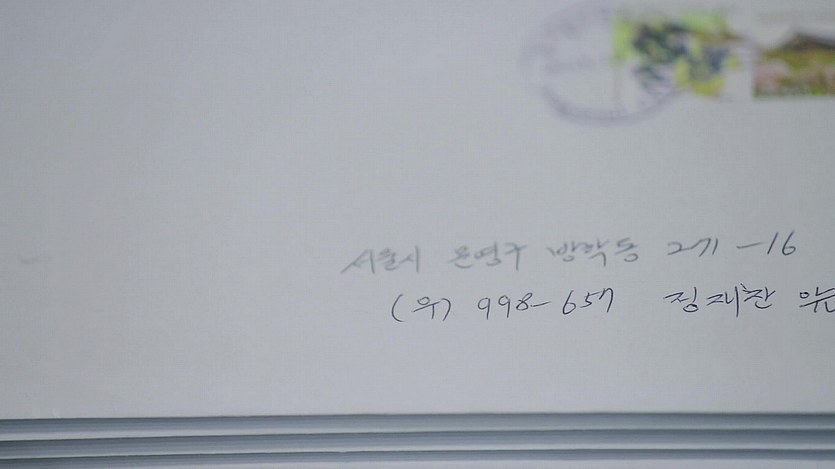 서울시 문영구 방학동 271-16
(우) 998-657 정재찬